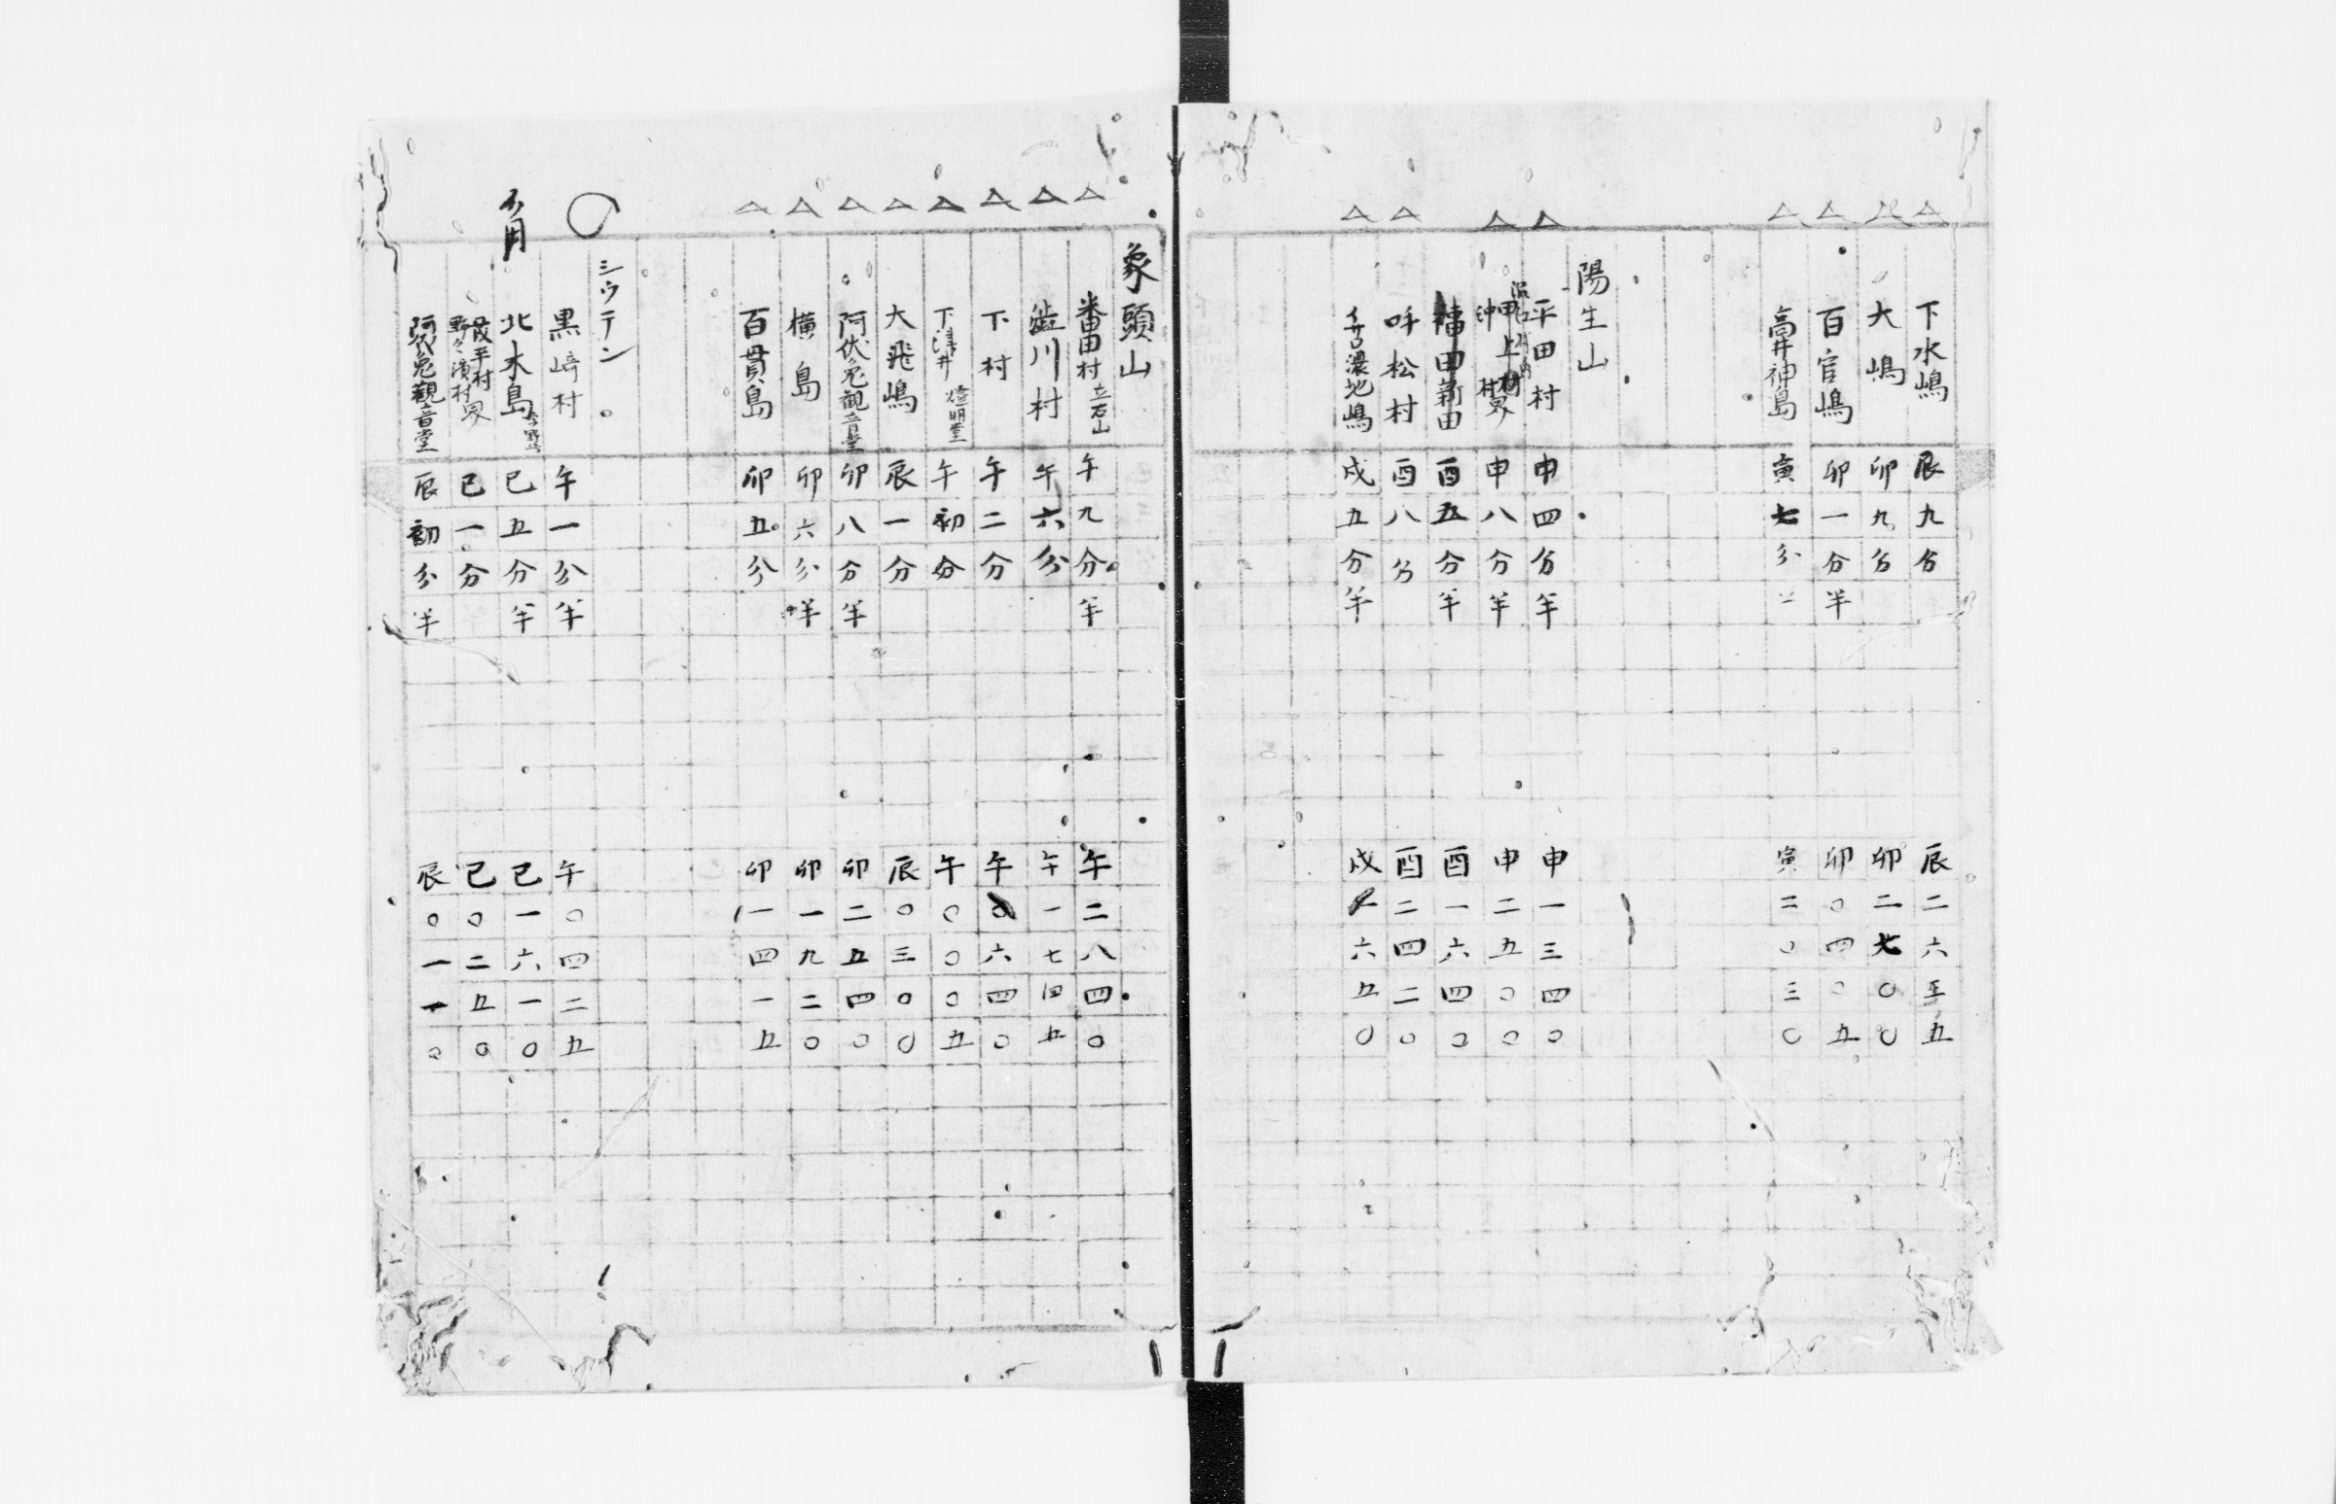 下水嶋 辰九分 辰二六五五
大嶋 卯九分 卯二七〇〇
百官嶋 卯一分半 卯〇四〇五
高井神島 寅七分 寅二〇三〇
陽生山
平田村 申四分半 申一三四〇
申八分半 申二五〇〇
福田新田 酉五分半 酉一六四〇
呼松村 酉八分 酉二四二〇
濃地嶋 戌五分半 戌一六五〇
象頭山
番田村 立石山 午九分半 午二八四〇
澁川村 午六分 午一七四五
下村 午二分 午〇六四〇
下津井 燈明堂 午初分 午〇〇〇五
大飛嶋 辰一分 辰〇三〇〇
阿伏兎観音堂 卯八分半 卯二五四〇
横島 卯六分半 卯一九二〇
百貫島 卯五分 卯一四一五
シウテン
黒崎村 午一分半 午〇四二五
北木島 巳五分半 巳一六一〇
野々濱村界 巳一分 巳〇二五〇
阿伏兎觀音堂 辰初分半 辰〇一一〇